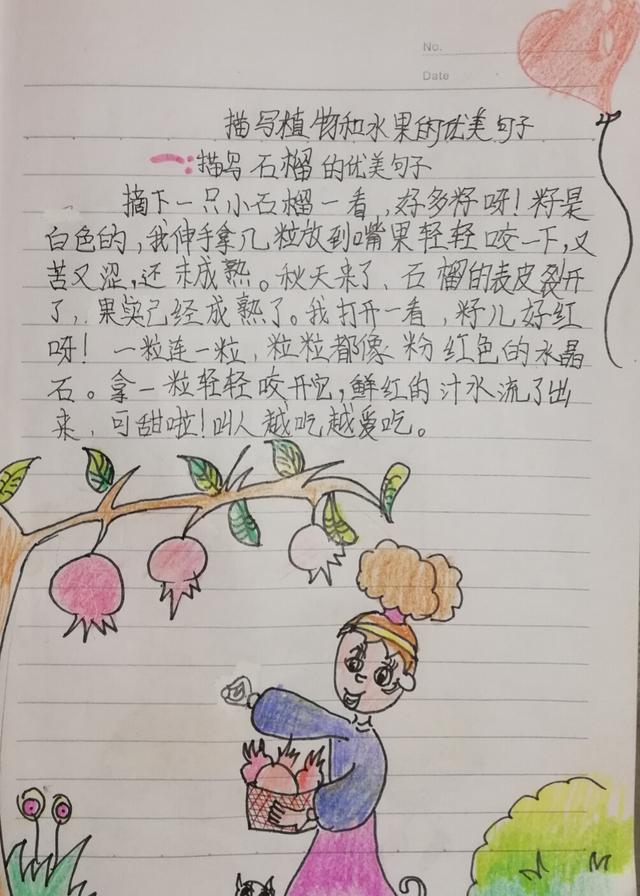 No.
Date
描写植物和水果的优美句子
一:描写石榴的优美句子
摘下一只小石榴一看,好多籽呀!籽是
白色的,我伸手拿几粒放到嘴果轻轻咬一下,又
苦又涩,还未成熟。秋天来了、石榴的表皮裂开
了,果实已经成熟了。我打开一看,籽儿好红
呀!一粒连一粒,粒粒都像粉红色的水晶
石。拿一粒轻轻咬开它,鲜红的汁水流了出
来,可甜啦!叫人越吃越爱吃。